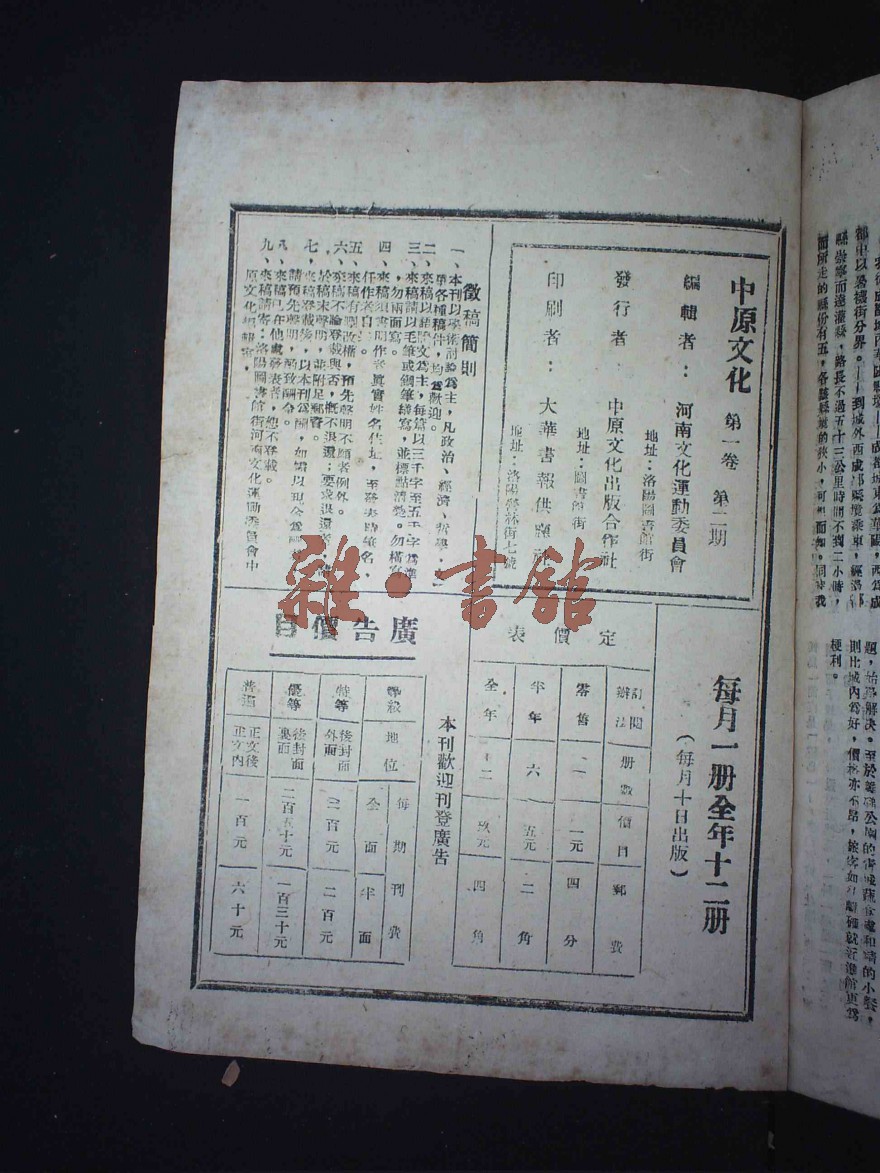 中原文化 第一卷 第二期
編輯者：河南文化運動委員會
地址：洛陽圖書館街
發行者：中原文化出版合作社
地址：圖書館街
印刷者：大華書報供應社
地址：洛陽 林街七號
徵稿簡則
一、本刊以學術討論爲主，凡政治、經濟、哲學，
等各種稿件，均爲歡迎。
二、來稿以 文爲主，每篇以三千字至五千字爲準
三、來稿請以毛筆或鋼筆繕寫，並標點清楚。勿橫寫
，勿兩面寫。
四、來稿須書明作者眞實姓名住址，至發表時筆名，
任作者自 。
五、來稿有刪改權，預先聲明不願者例外。
六、來稿不論登載與否，概不退還；要求退還者，請
於稿末聲明，並附足郵費。
七、來稿登載後，以本刊爲酬，如需以現金爲酬
請預先聲明，酌致酬金。
八、來稿已在他處發表者，恕不登載。
九、來稿請寄：洛陽圖書館街河南文化運動委員會中
原文化編輯部。
每月一册全年十二册
（每月十日出版）
定價表
訂閱辦法 册數 價目 郵費
零售 一 一元 四分
半年 六 五元 二角
全年 十二 玖元 四角
本刊歡迎刊登廣告
廣告價目
等級 地位 每期刊費 全面 半面
特等 後封面外面 三百元 二百元
優等 後封面裏面 二百五十元 一百三十元
普通 正文後正文內 一百元 六十元
雜·書館
都中以暑襪街分界。——到城外西成都縣境乘車，經 郫
縣崇寧而達灌縣，路長不過五十三公里時間不到二小時，
所走的縣份有五，各縣縣城的狹小，可想而知。同時我
題，始算解決。至於 公園的
則比城內爲好，價格亦不昂，旅客如
便利。